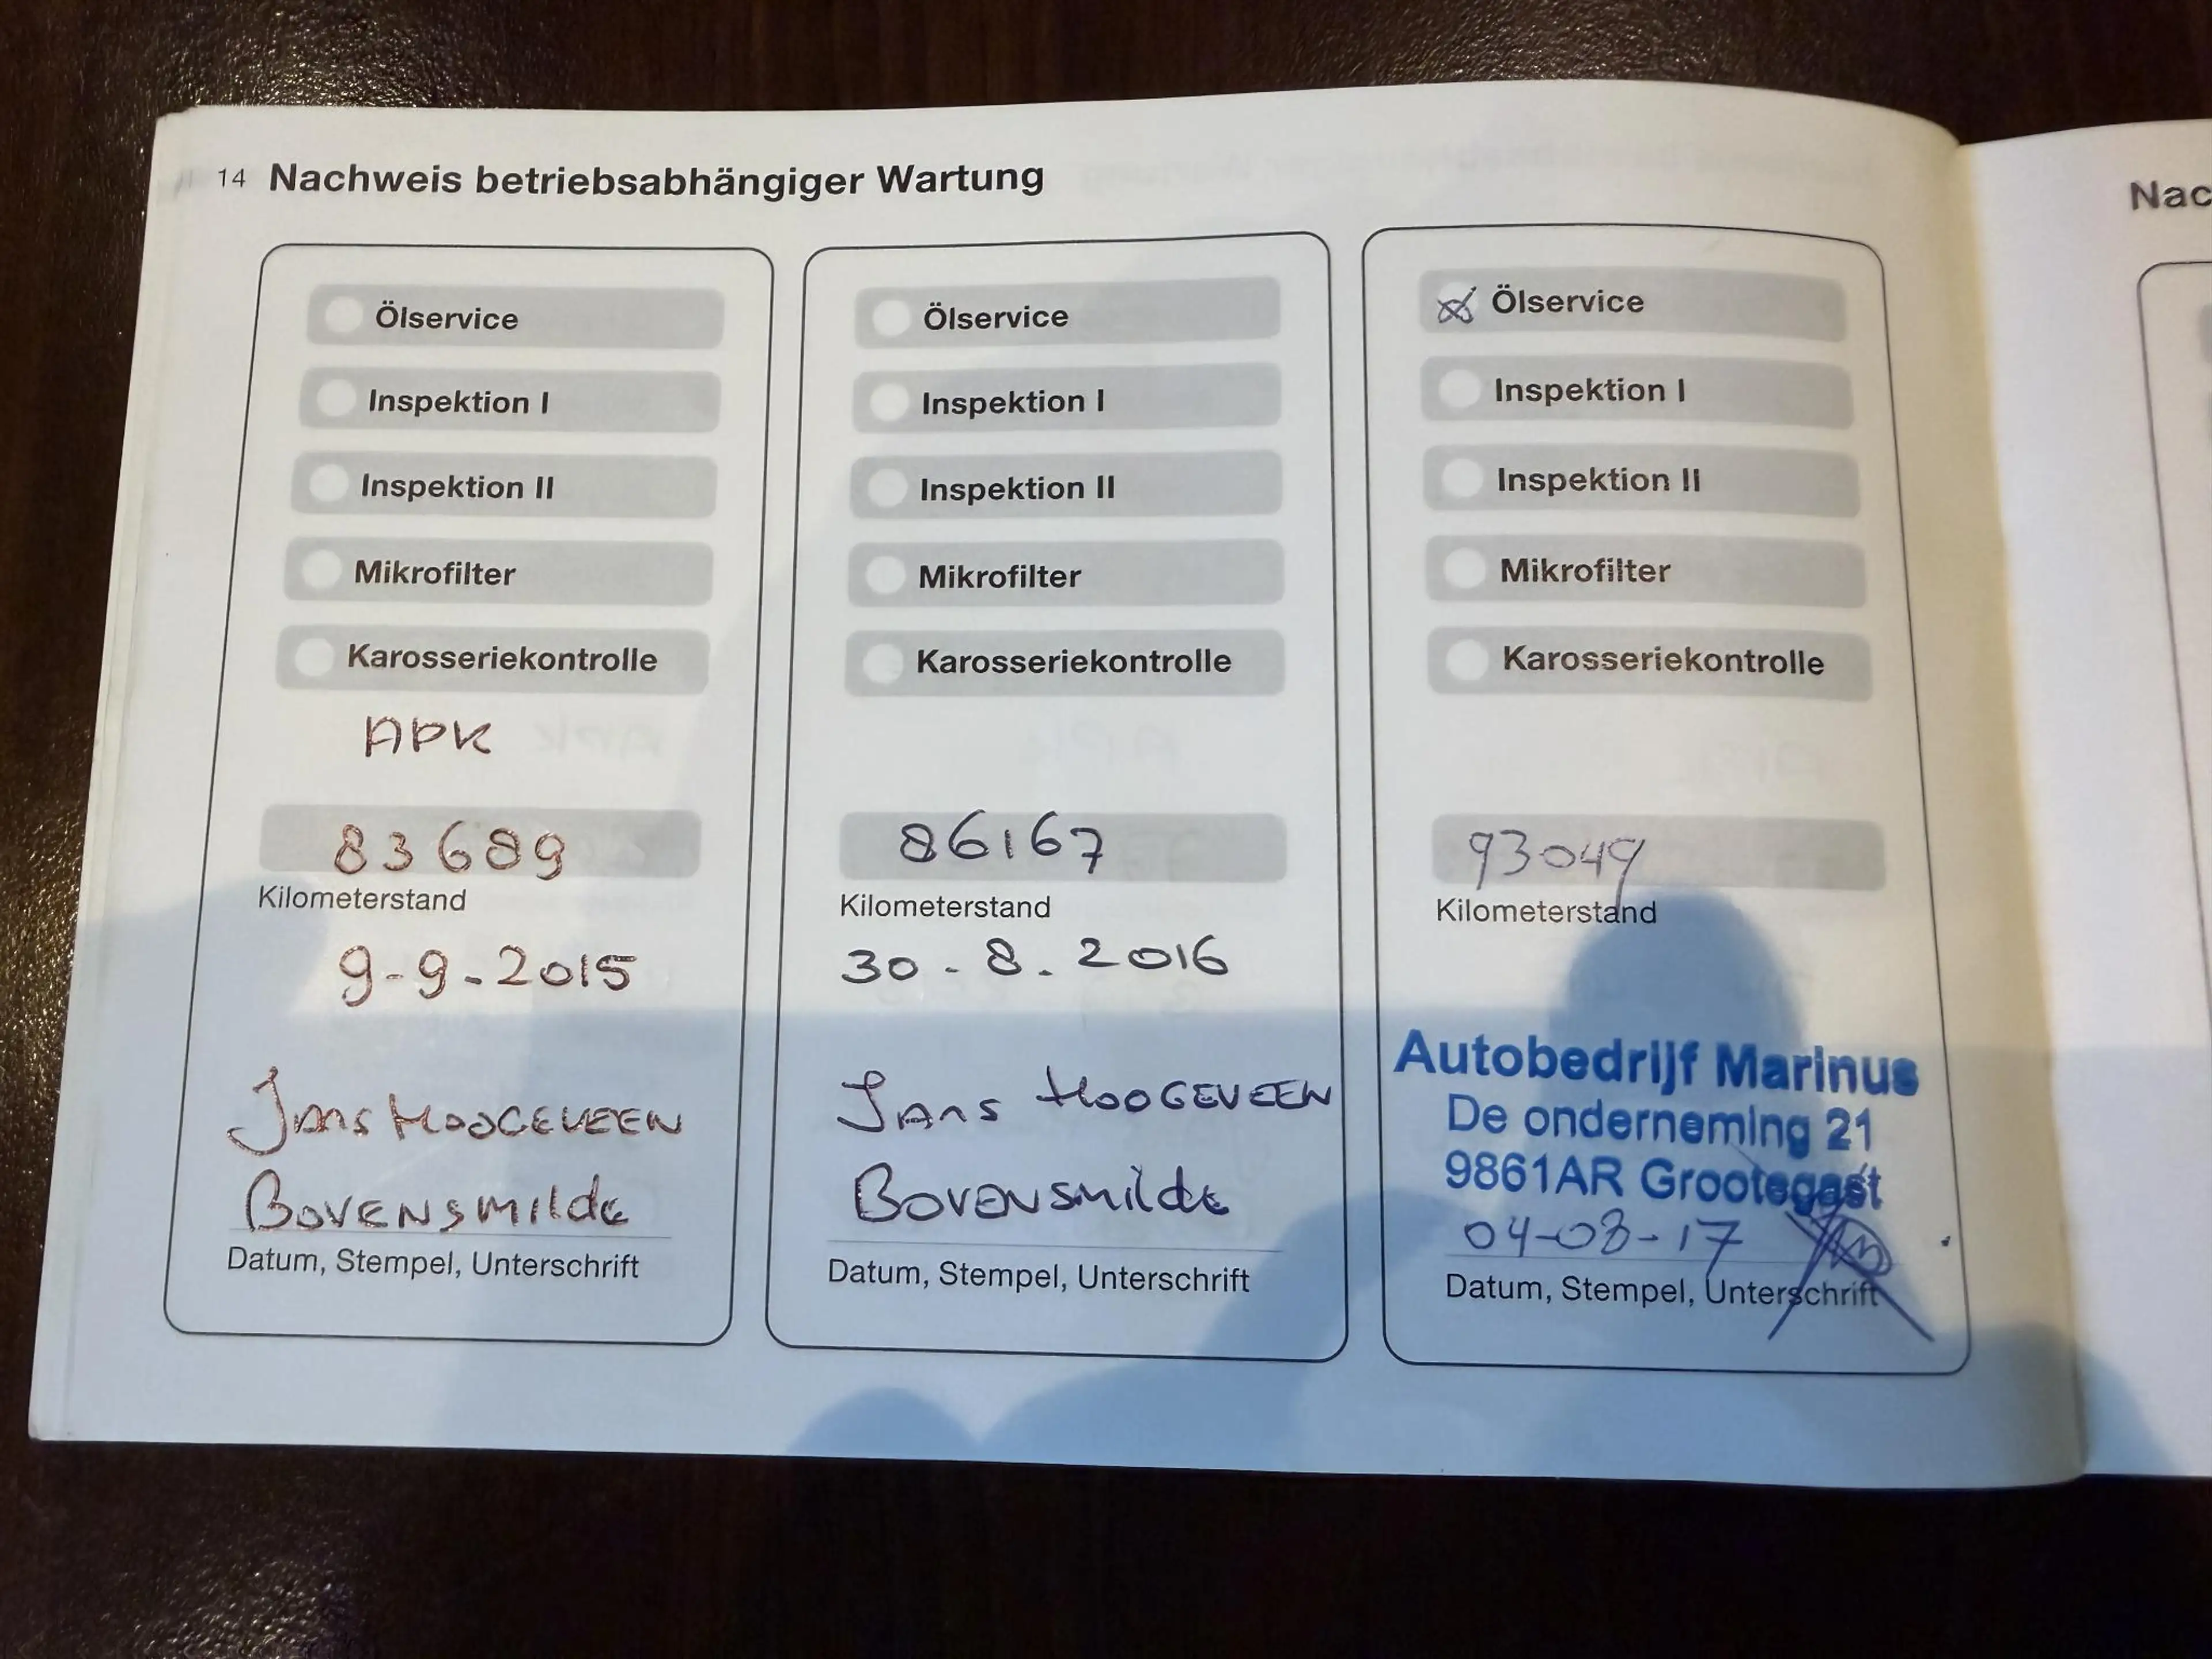 14 Nachweis betriebsabhängiger Wartung
Ölservice
Inspektion I
Inspektion II
Mikrofilter
Karosseriekontrolle
APK
83689
Kilometerstand
9-9-2015
Jans HOOGEVEEN
BOVENSMILde
Datum, Stempel, Unterschrift
Ölservice
Inspektion I
Inspektion II
Mikrofilter
Karosseriekontrolle
86167
Kilometerstand
30-8-2016
JANS HOOGEVEEN
BOVENSMilde
Datum, Stempel, Unterschrift
Ölservice
Inspektion I
Inspektion II
Mikrofilter
Karosseriekontrolle
93049
Kilometerstand
Autobedrijf Marinus
De onderneming 21
9861AR Grootegast
04-08-17
Datum, Stempel, Unterschrift
Nac